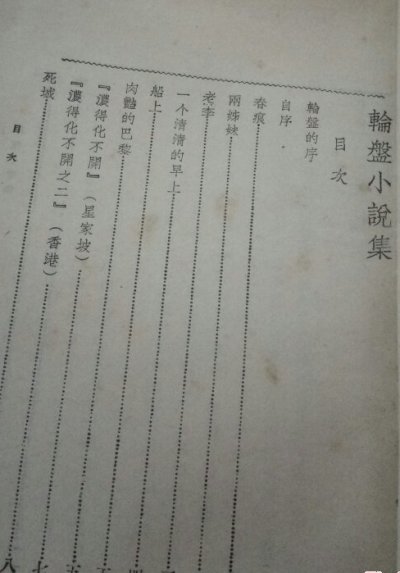 輪盤小說集
目次
輪盤的序
自序
春痕
兩姊妹
老李
一个清清的早上
船上
肉豔的巴黎
『濃得化不開』(星家坡)
『濃得化不開之二』(香港)
死城
目次